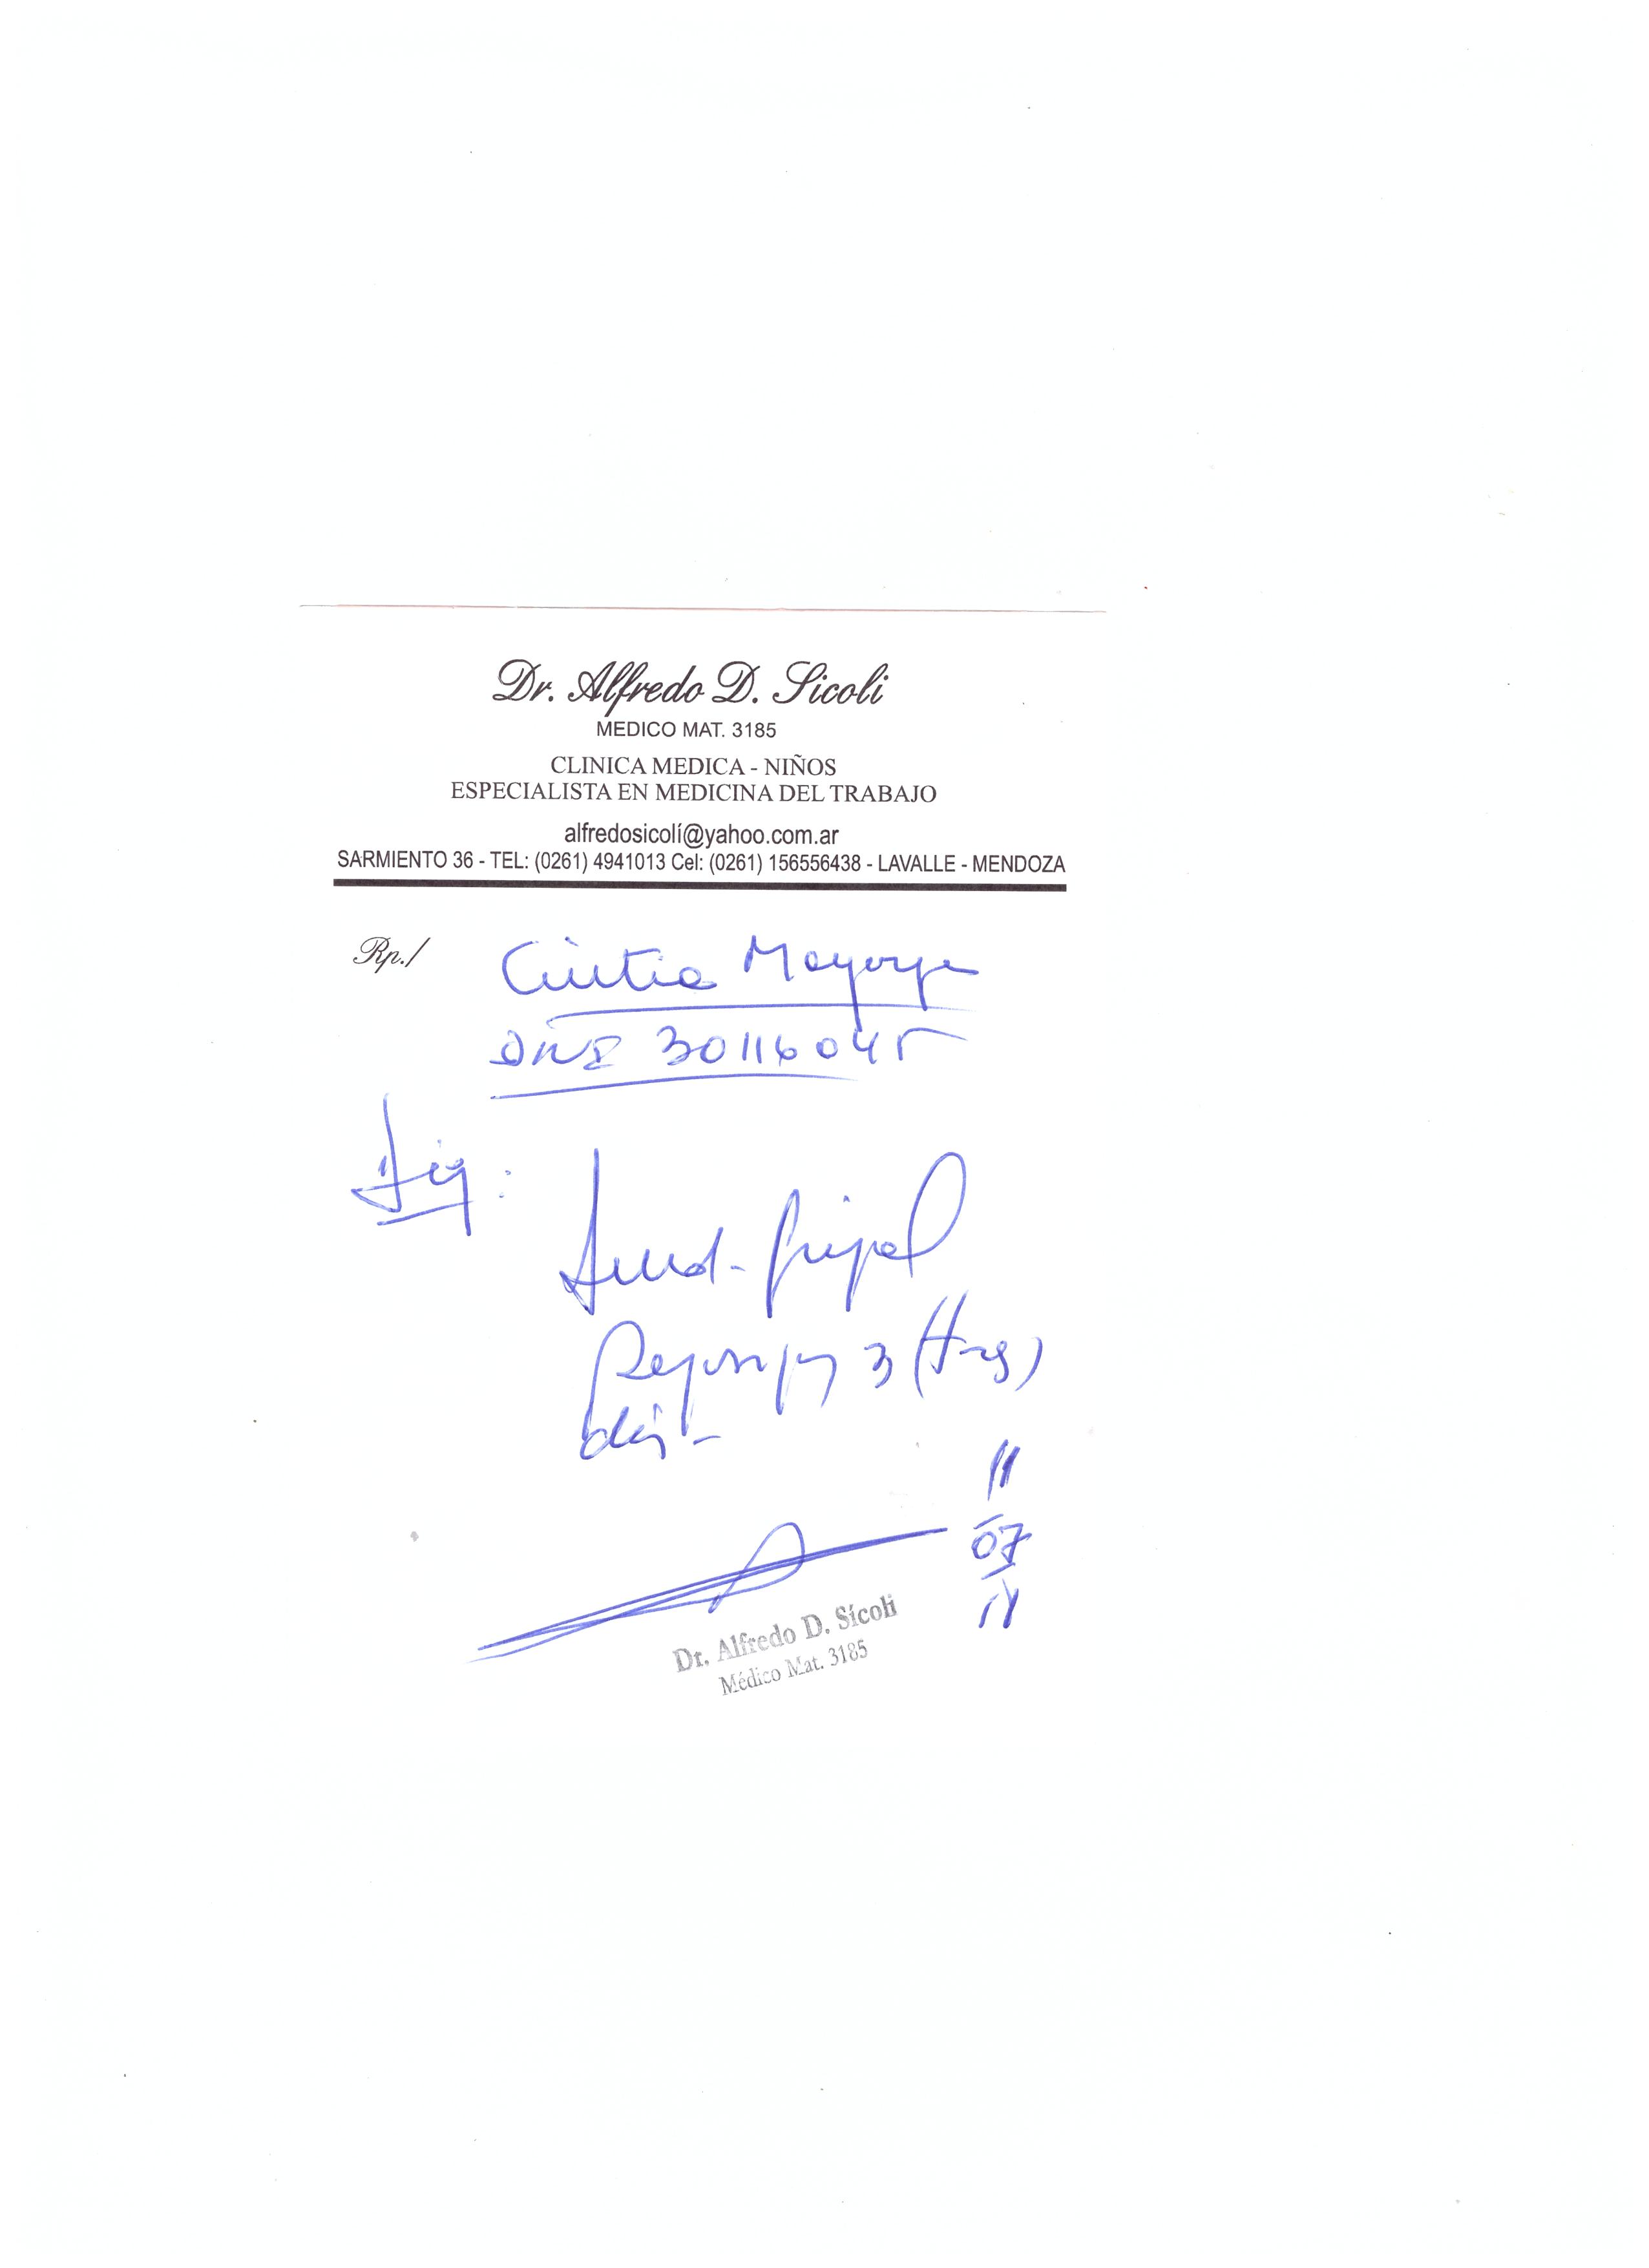 Dr. Alfredo D. Sicoli
MEDICO MAT. 3185
CLINICA MEDICA - NIÑOS
ESPECIALISTA EN MEDICINA DEL TRABAJO
alfredosicolí@yahoo.com.ar
SARMIENTO 36 - TEL: (0261) 4941013 Cel: (0261) 156556438 - LAVALLE - MENDOZA
Rp./
Cintia Mayorga
DNI 30116045
Gripal
Reposo 3 (tres)
días
11
07
Dr. Alfredo D. Sícoli
Médico Mat. 3185